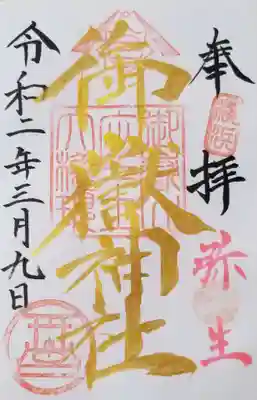 奉拝
弥生
御嶽神社
令和二年三月九日